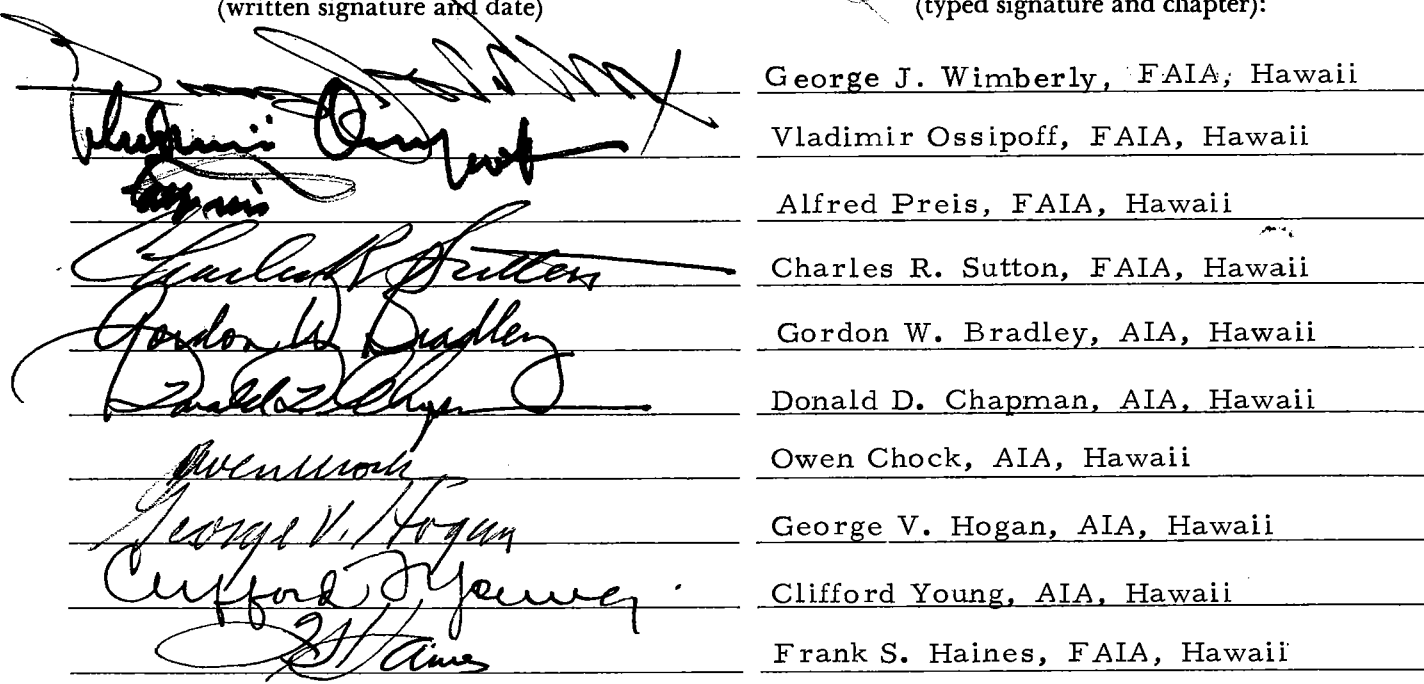 (written signature and date) (typed signature and chapter):
George J. Wimberly, FAIA, Hawaii
Vladimir Ossipoff Vladimir Ossipoff, FAIA, Hawaii
Alfred Preis, FAIA, Hawaii
Charles R Sutton Charles R. Sutton, FAIA, Hawaii
Gordon W Bradley Gordon W. Bradley, AIA, Hawaii
Donald D. Chapman, AIA, Hawaii
Owen Chock Owen Chock, AIA, Hawaii
George V. Hogan George V. Hogan, AIA, Hawaii
Clifford F Young Clifford Young, AIA, Hawaii
F S Haines Frank S. Haines, FAIA, Hawaii